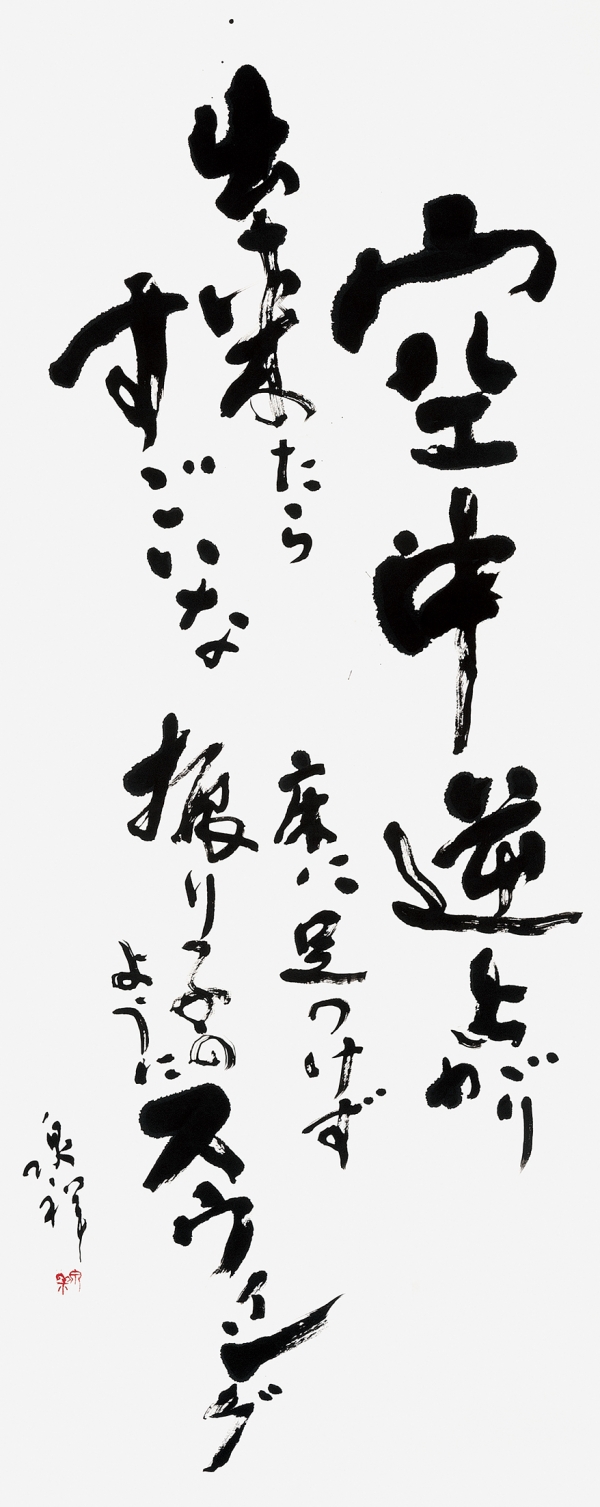 空中逆上がり
出来たら
すごいな
床に足つけず
振り子の
ように
スウィング
泉祥